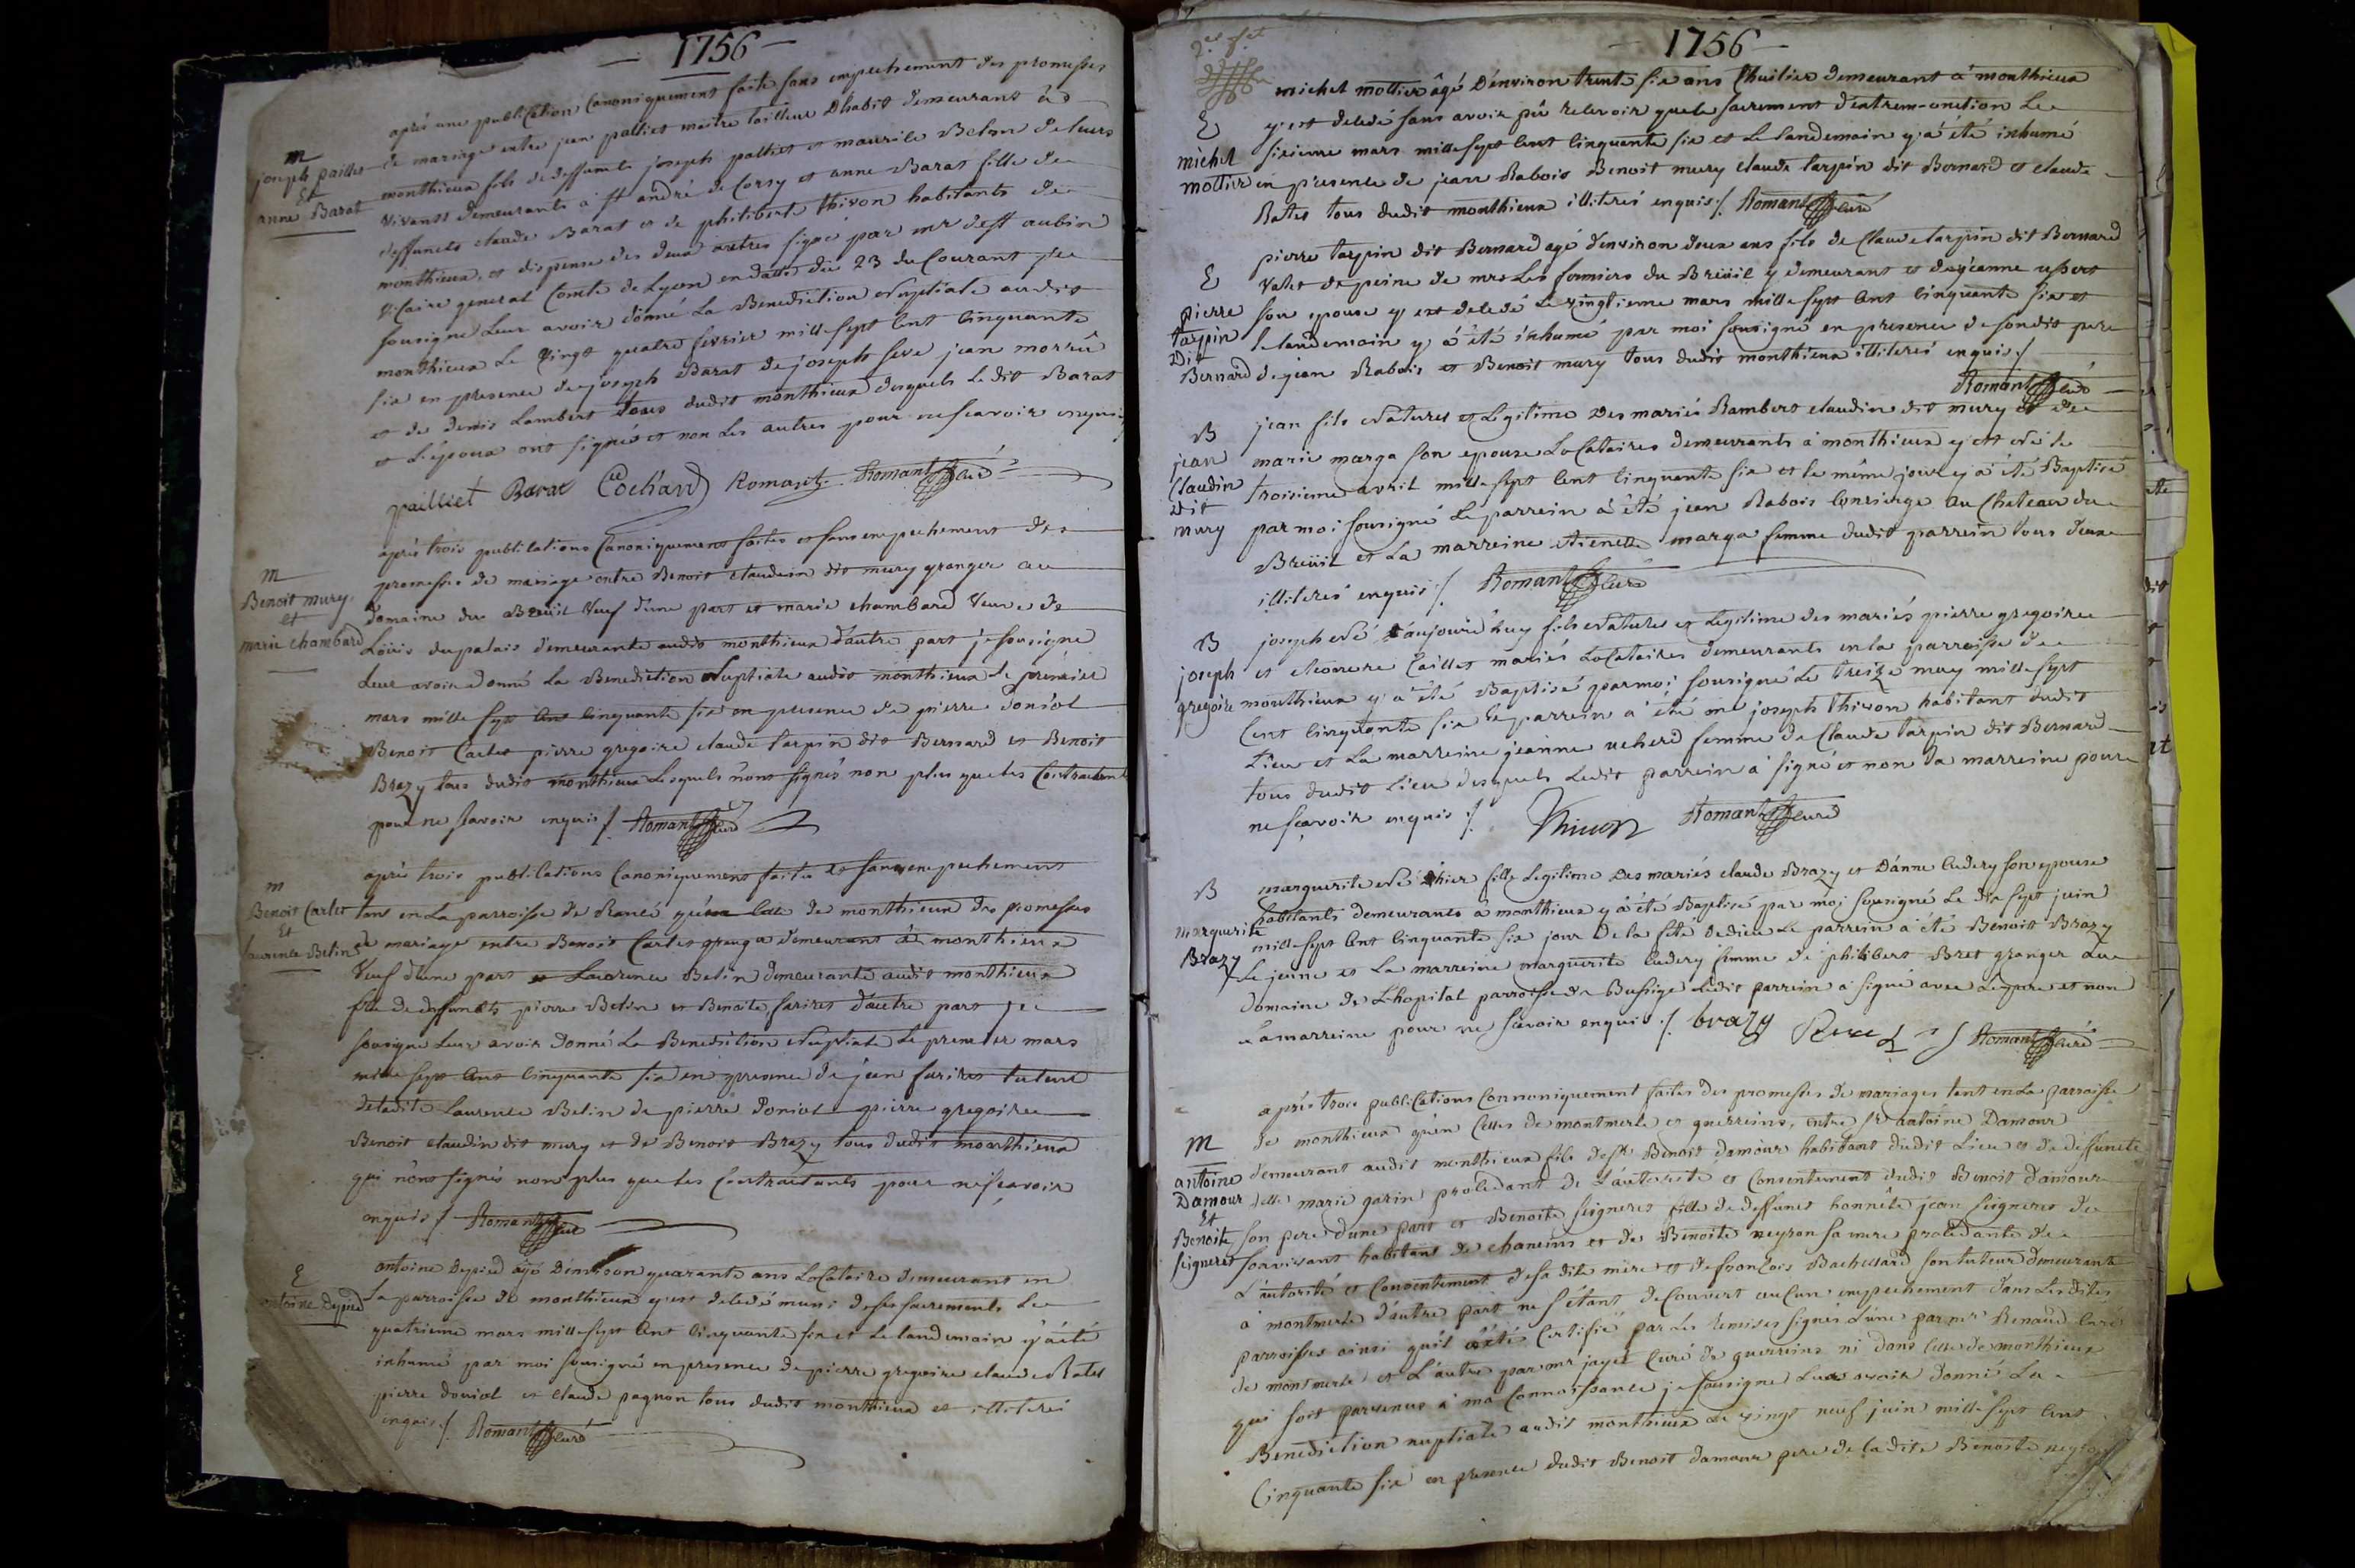 — 1756 —
après une publication canoniquement faite sans empechement des promesses
M
joseph paillet
Et
anne Barat
de mariage entre jean palliet maitre tailleur d'habit demeurant à
monthieux fils de deffunts joseph palliet et maurile Belon de leurs
vivants demeurants à st andré de Corsy et anne Barat fille de
deffuncts claude Barat et de philiberte thivon habitants de
monthieux, et dispense des deux autres signé par mr de st aubin
vicaire general Comte de Lyon en datte du 23 du Courant je
sousigné leur avoir donné la Benediction Nuptiale audit
monthieux le vingt quatre fevrier mille sept cent cinquante
six en presence de joseph Barat de joseph seve jean
et de denis Lambert tous dudit monthieux desquels ledit Barat
et l'époux ont signés et non les autres pour ne scavoir enquis
pailliet Barat Cochard Romant Romant curé
M
Benoit mury
et
marie chambard
après trois publications canoniquement faites et sans empechement des
promesses de mariage entre Benoit claudin dit mury granger au
domaine du Breüil veuf d'une part et marie chambard veuve de
Loüis dupalais demeurante audit monthieux d'autre part je sousigné
leur avoir donné la Benediction Nuptiale audit monthieux le prémier
mars mille sept cent cinquante six en presence de pierre doniol
Benoit Carlet pierre gregoire claude tarpin dit Bernard et Benoit
Brazy tous dudit monthieux lesquels n'ont signés non plus que les Contractants
pour ne scavoir enquis ./. Romant curé
m
Benoit Carlet
Et
laurence Belin
après trois publications canoniquement faites et sans empechement
tant en la parroisse de Rancé qu'en celle de monthieux des promesses
de mariage entre Benoit Carlet granger demeurant à monthieux
veuf d'une part et Laurence Belin demeurante audit monthieux
fille de deffuncts pierre Belin et Benoite d'autre part je
sousigné leur avoir donné la Benediction Nuptiale le premier mars
mille sept cent cinquante six en presence de jean tuteur
de ladite Laurence Belin de pierre doniol pierre gregoire
Benoit claudin dit mury et de Benoit Brazy tous dudit monthieux
qui n'ont signés non plus que les Contractants pour ne scavoir
enquis ./. Romant curé
E
antoine Depied
antoine Depied agé d'environ quarante ans Locataire demeurant en
la parroisse de monthieux y est decedé muni de ses sacrements le
quatrieme mars mille sept cent cinquante six et le landemain y a été
inhumé par moi sousigné en presence de pierre gregoire claude Ratet
pierre doniol et claude pagnon tous dudit monthieux et illiterés
enquis ./. Romant curé
— 1756 —
E
michel
mottier
michel mottier âgé d'environ trente six ans thuilier demeurant à monthieux
y est decedé sans avoir pû recevoir que le sacrement d'extrem-onction le
sixieme mars mille sept cent cinquante six et le landemain y a été inhumé
en presence de jean Rabois Benoit mury claude tarpin dit Bernard et claude
Ratet tous dudit monthieux illiterés enquis ./. Romant curé
E
pierre
tarpin
dit
Bernard
pierre tarpin dit Bernard agé d'environ deux ans fils de Claude tarpin dit Bernard
valet de peine de mrs les fermiers du Breüil y demeurant et de jeanne
son epouse y est decedé le vingtieme mars mille sept cent cinquante six et
le landemain y a été inhumé par moi sousigné en presence de sondit pere
de jean Rabois et Benoit mury tous dudit monthieux illiterés enquis ./.
Romant curé
B
jean
Claudin
dit
mury
jean fils Naturel et Legitime des mariés Rambert claudin dit mury et de
marie marga son epouse Locataires demeurants à monthieux y est né le
troisieme avril mille sept cent cinquante six et le même jour y a été Baptisé
par moi sousigné le parrein a été jean Rabois Concierge au Chateau du
Breüil et la marreine etienette marga femme dudit parrein tous deux
illiterés enquis ./. Romant curé
B
joseph
gregoire
joseph né aujourd'huy fils Naturel et legitime des mariés pierre gregoire
et eleonore Caillet mariés Locataires demeurants en la parroisse de
monthieux y a été Baptisé par moi sousigné le treize may mille sept
Cent cinquante six le parrein a été me joseph thivon habitant dudit
Lieu et la marreine jeanne femme de Claude tarpin dit Bernard
tous dudit Lieu desquels ledit parrein a signé et non la marreine pour
ne scavoir enquis ./. Thivon Romant curé
B
marguerite
Brazy
marguerite née hier fille Legitime des mariés claude Brazy et d'anne cudery son epouse
habitants demeurants à monthieux y a été Baptisé par moi sousigné le dix sept juin
mille sept cent cinquante six jour de la fête de dieu le parrein a été Benoit Brazy
le jeune et la marreine marguerite cudery femme de philibert Bret granger au
domaine de l'hopital parroisse de Bussige ledit parrein a signé avec le pere et non
la marreine pour ne scavoir enquis ./. brazy Romant curé
M
antoine
Damour
Et
Benoite
seigneret
après trois publications Cannoniquement faites des promesses de mariages tant en la parroisse
de monthieux qu'en Celles de montmerle et guerreins, entre sr antoine Damour
demeurant audit monthieux fils de sr Benoit damour habitant dudit Lieu et de deffuncte
delle marie garin procedant de l'autorité et Consentement dudit Benoit damour
son pere d'une part et Benoite seigneret fille de deffunct honnête jean seigneret de
son vivant habitant de chaneins et de Benoite neyron sa mere procedante de
l'autorité et Consentement de sa dite mere et de françois Bachelard son tuteur demeurante
à montmerle d'autre part ne s'étant decouvert aucun empechement dans lesdites
parroisses ainsi qu'il a été Certifié par les remises signés l'une par mr Renaud curé
de montmerle et l'autre par mr jayet curé de guerreins ni dans celle de monthieux
qui soit parvenus à ma Connoissance je sousigné leur avoir donné la
Benediction nuptiale audit monthieux le vingt neuf juin mille sept cent
Cinquante six en presence dudit Benoit damour pere de ladite Benoite neyron